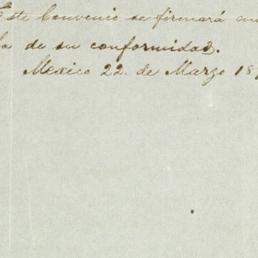 Este Convenio se firmará
de su conformidad.
Mexico 22. de Marzo 18